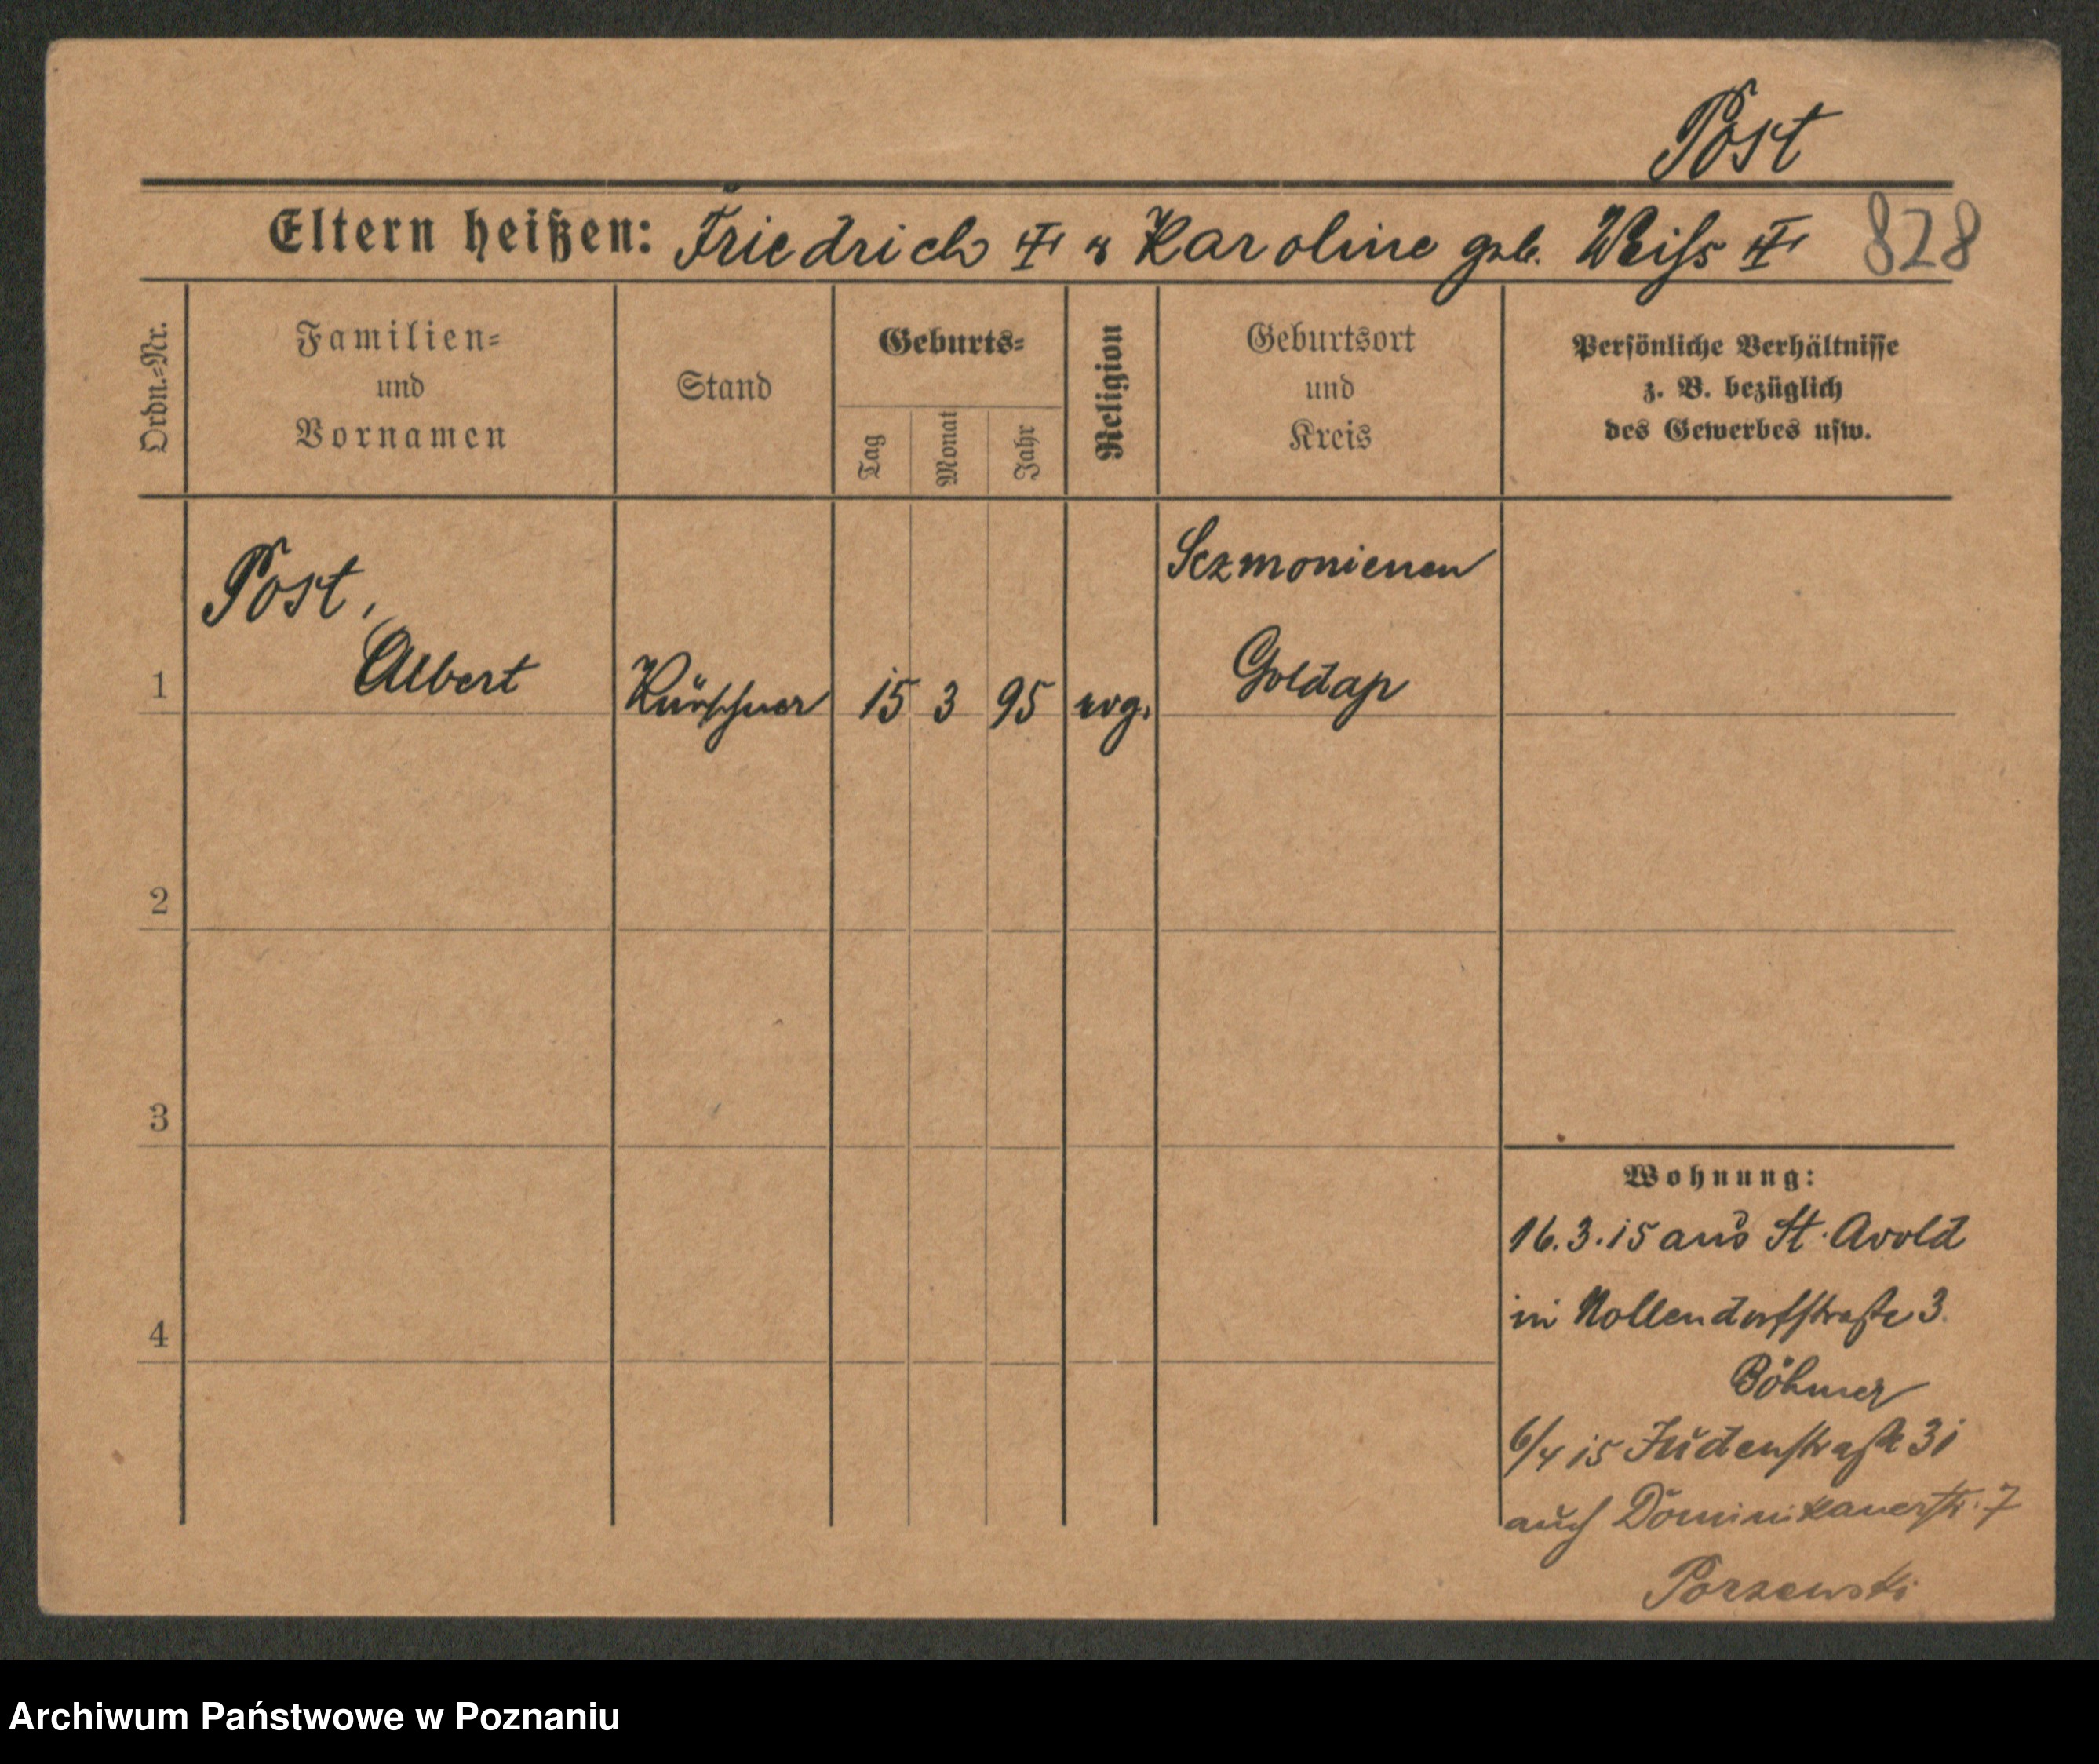 Post
Eltern heißen: Friedrich † u Karoline geb. Weiß † 828
Ordn.=Nr.
Familien=
und
Vornamen
Stand
Geburts=
Tag
Monat
Jahr
Religion
Geburtsort
und
Kreis
Persönliche Verhältnisse
z. B. bezüglich
des Gewerbes usw.
1
Post,
Albert
Kürschner
15
3
95
evg.
Sczmonienen
Goldap
2
3
4
Wohnung:
16.3.15 aus St. Avold
in Nollendorfstraße 3.
Böhmer
6/4 15 Judenstraße 31
auch Dominikanerstr. 7
Porzewski
Archiwum Państwowe w Poznaniu